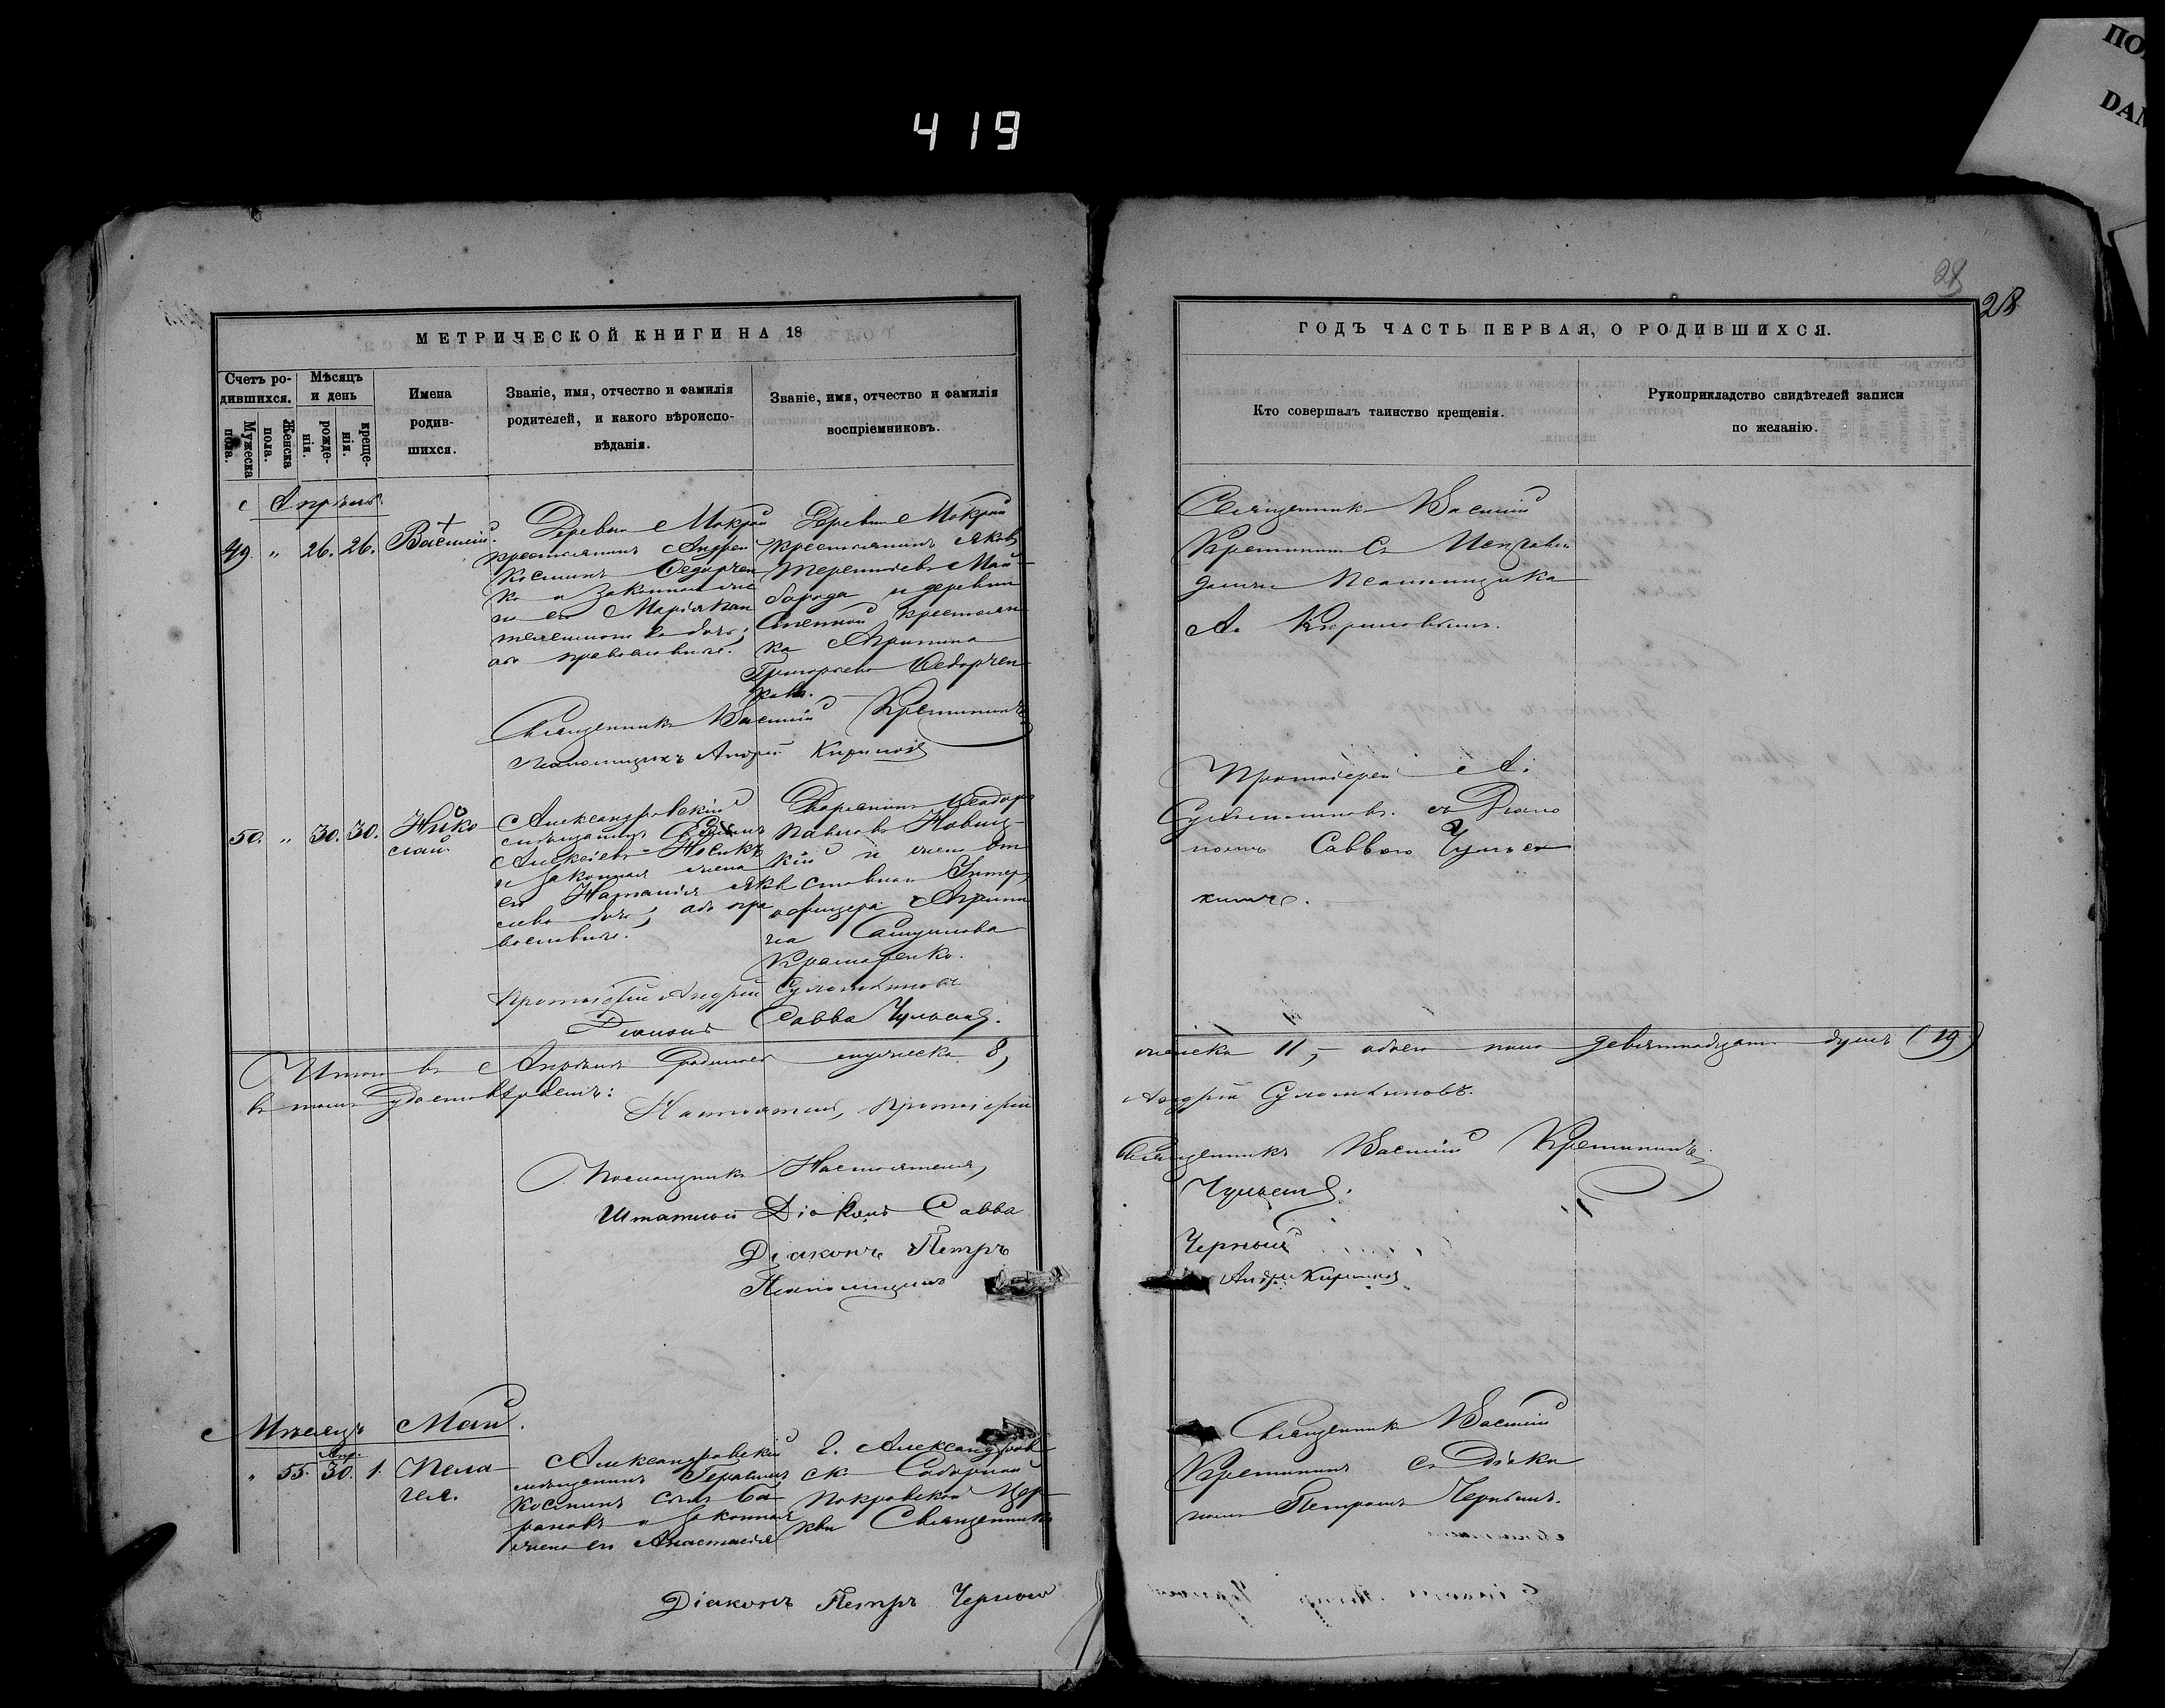 ПО
DAM
419
28
28
МЕТРИЧЕСКОЙ КНИГИ НА 18
Счетъ ро-
дившихся.
Мужеска пола.
Женска пола.
Мѣсяцъ
и день
рожде-
нія.
креще-
нія.
Имена
родив-
шихся.
Званіе, имя, отчество и фамилія
родителей, и какого вѣроиспо-
вѣданія.
Званіе, имя, отчество и фамилія
воспріемниковъ.
Апрѣль.
49. " 26. 26. Василій.
Деревни Мокрой
крестьянинъ Андрей
Косминъ Федорчен
ко и законная жена
его Марія
православные.
Деревни Мокрой
крестьянинъ Яковъ
Терентіевъ Май-
борода и деревни
крестьян
ка Агрипина
Григорьева Федорчен
кова.
Священникъ Василій Кретининъ
Псаломщикъ Андрей Кириловъ
50. " 30. 30. Нико
лай
Александровскій
мѣщанинъ
Алексіевъ Носикъ
и законная жена
его Наталія Яковлева
оба пра
вославные.
Дворянинъ Феодоръ
Павловъ Новиц-
кій и жена от
ставнаго Унтеръ
офицера Агрипи
на Самуилова
Крамаренко.
Протоіерей Андрей Сулоцкиновъ
Діаконъ Савва Чульск
Итого въ Апрѣлѣ родилось мужеска 8,
въ томъ удостовѣряемъ:
Настоятель, Протоіерей
Помощникъ Настоятеля,
Штатный Діаконъ Савва
Діаконъ Петръ
Псаломщикъ
Мѣсяцъ Май.
Апр.
" 55. 30. 1. Пела
гея.
Александровскій
мѣщанинъ Герасимъ
Косминъ сынъ Ба-
рановъ и законная
жена его Анастасія
г. Александров
ск. Соборной
Покровской Цер-
кви Священникъ
Діаконъ Петръ Черный
ГОДЪ ЧАСТЬ ПЕРВАЯ, О РОДИВШИХСЯ.
Кто совершалъ таинство крещенія.
Рукоприкладство свидѣтелей записи
по желанію.
Священникъ Василій
Кретининъ съ
Псаломщика
А. Кириловымъ.
Протоіерей А.
съ Діако
номъ Саввою
женска 11, обоего пола девятнадцать душъ (19)
Андрей
Священникъ Василій Кретининъ
Черный
Андрей Кириловъ
Священникъ Василій
Кретининъ съ Діако
номъ Петромъ Чернымъ.